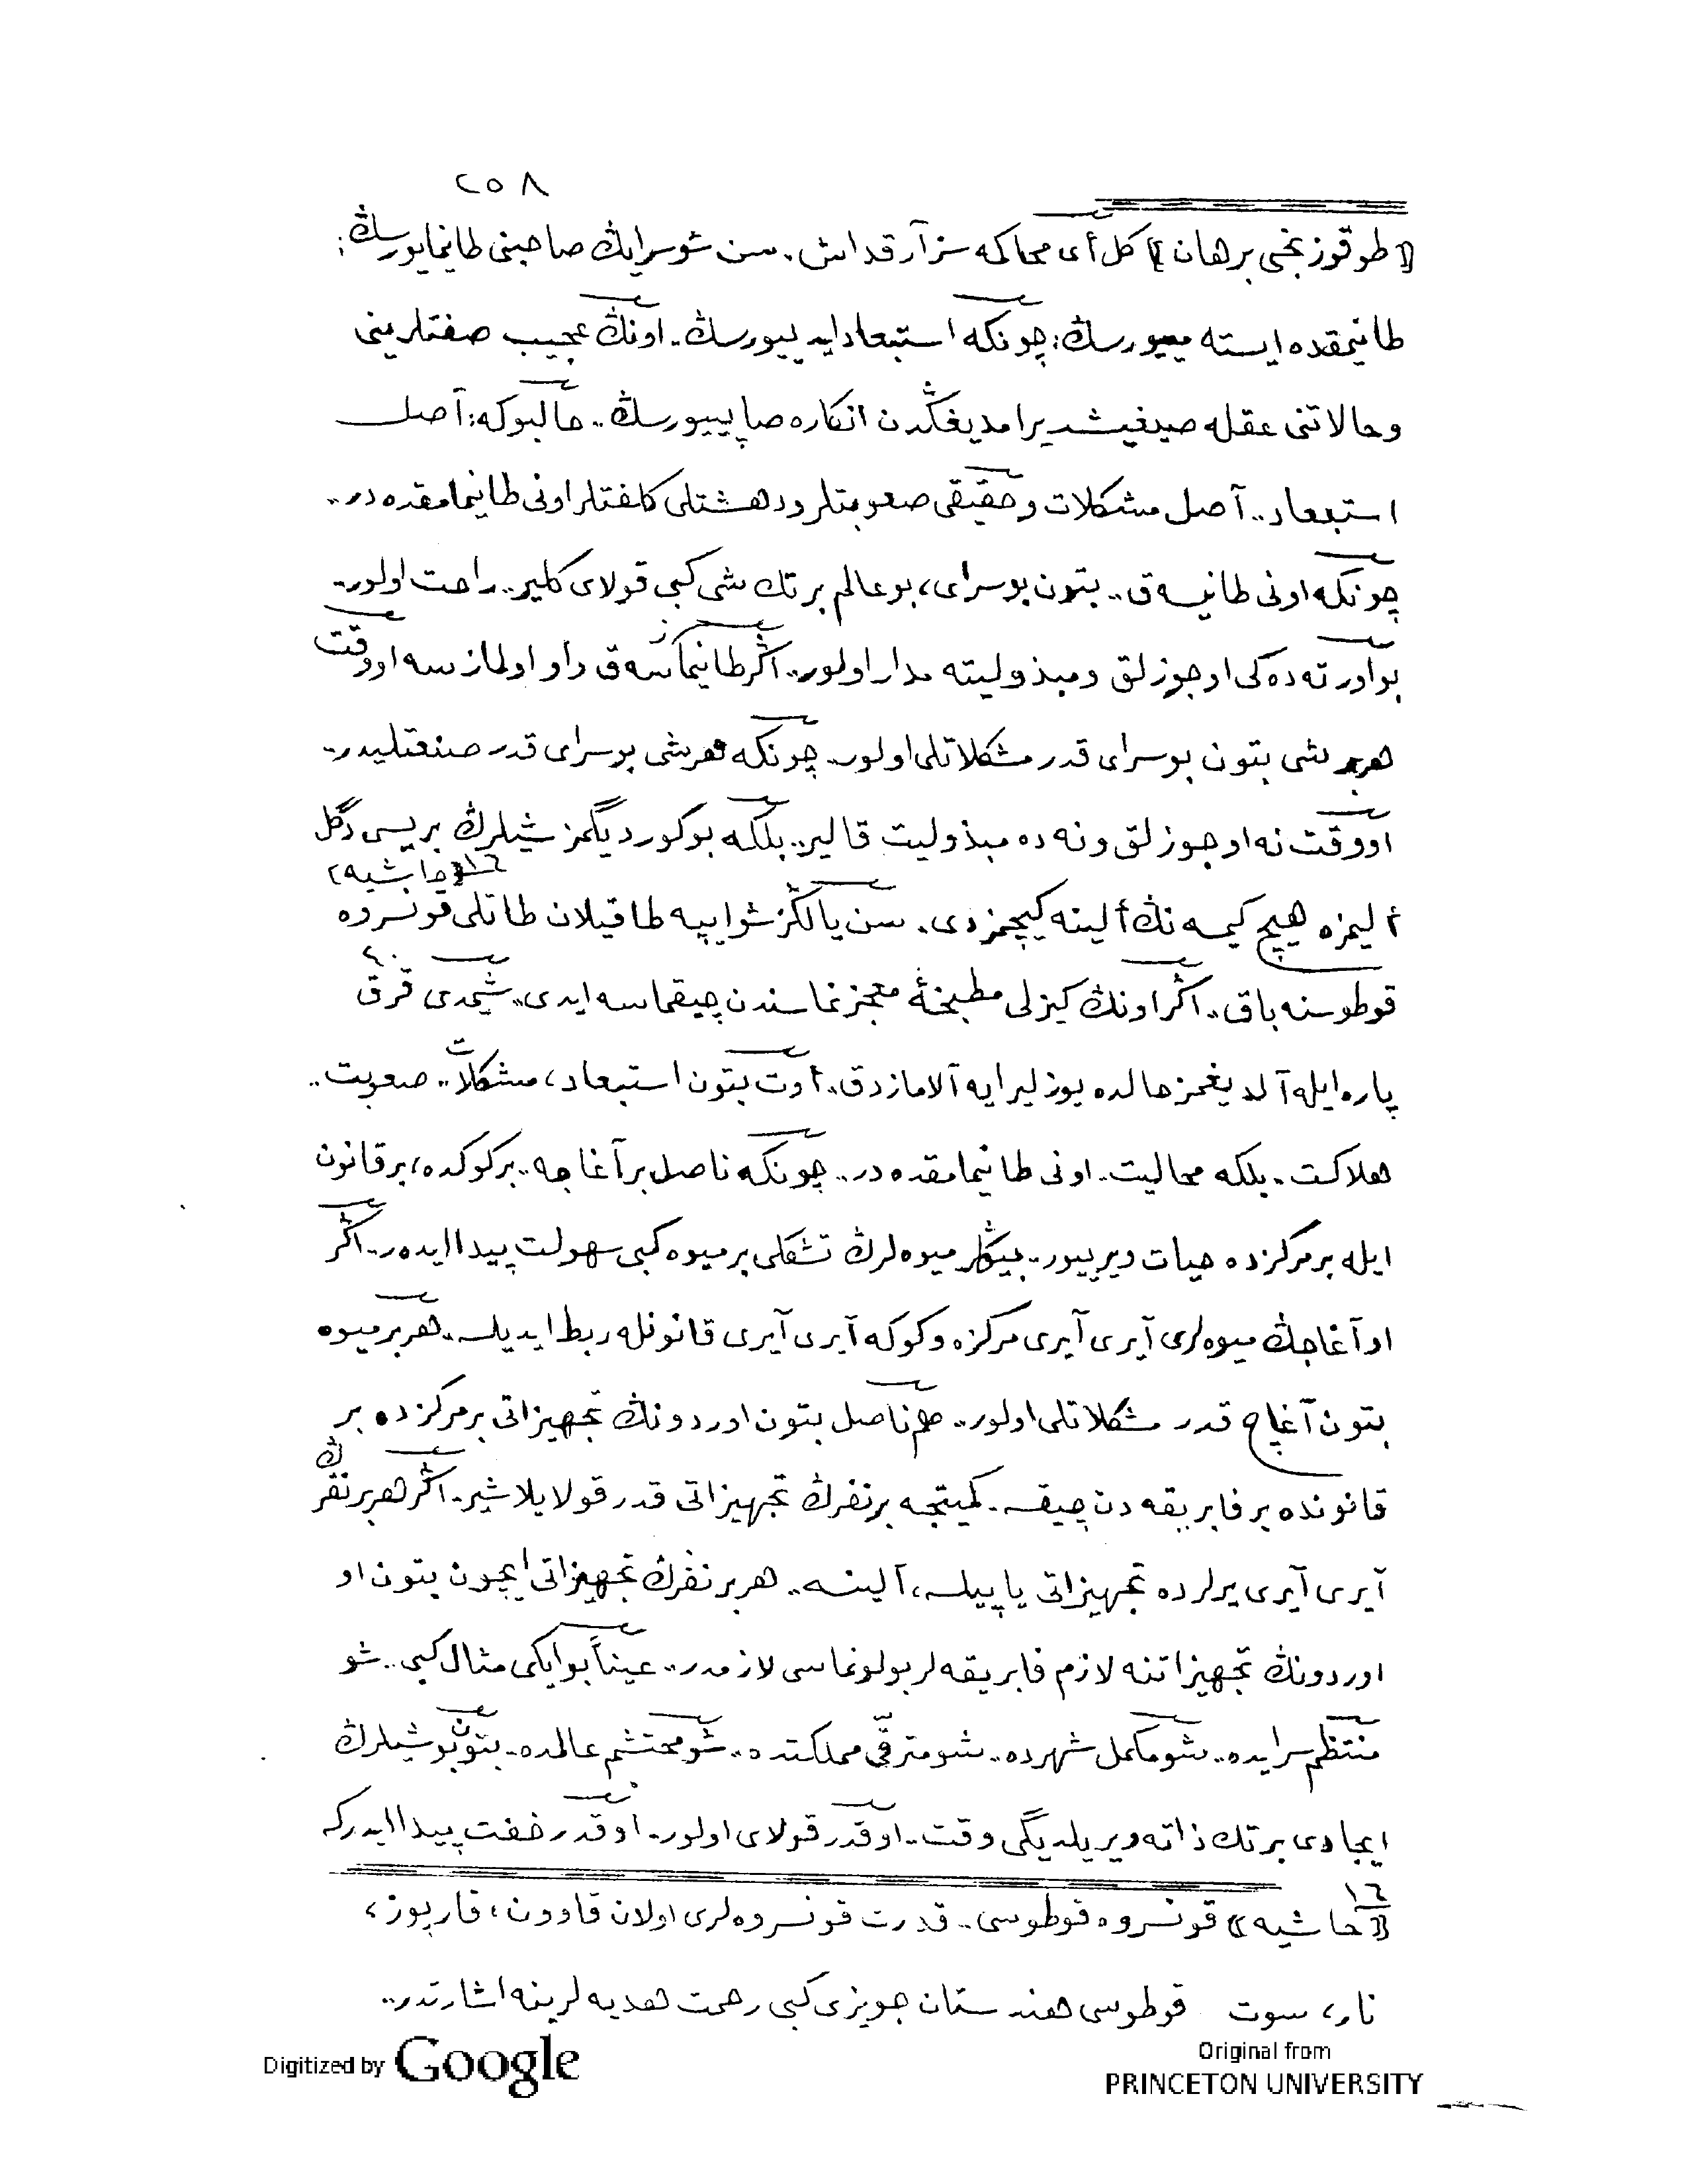 ٢٥٨
﴿طوقوزنجى برهان﴾ كل أى محاكمه سز آرقداش. سن شو سرايڭ صاحبنى طانيمايورسڭ:
طانيمقده ايسته ميورسڭ: چونكه استبعاد ايدييورسڭ. اونڭ عجيب صفتلرينى
وحالاتنى عقله صيغيشديرامديغڭدن انكاره صاپييورسڭ.. حالبوكه: آصل
استبعاد.. آصل مشكلات و حقيقى صعوبتلر ودهشتلى كلفتلر اونى طانيمامقده در..
چونكه اونى طانيسه ق.. بتون بوسراى، بوعالم بر تك شى كبى قولاى كلير.. راحت اولور..
بو اورته ده كى اوجوزلق ومبذوليته مدار اولور.. اڭر طانيمازسه ق و او اولمازسه او وقت
هر بر شى بتون بوسراى قدر مشكلاتلى اولور. چونكه هر شى بوسراى قدر صنعتليدر..
او وقت نه اوجوزلق ونه ده مبذوليت قالير.. بلكه بو كورديگمز شيلرڭ بريسى دگل
١٦ ﴿حاشيه﴾
أليمزه هيچ كيمسه نڭ ألينه كيچمزدى. سن يالڭز شو ايپه طاقيلان طاتلى قونسروه
قوطوسنه باق.. اڭر اونڭ كيزلى مطبخۀ معجزنماسندن چيقماسه ايدى.. شيمدى قرق ٤٠
پاره ايله آلديغمز حالده يوز ليرايه آلامازدق.. أوت بتون استبعاد، مشكلات.. صعوبت..
هلاكت. بلكه محاليت. اونى طانيمامقده در.. چونكه ناصل بر آغاجه.. بر كوكده، بر قانون
ايله بر مركزده حيات ويرييور.. بيڭلر ميوه لرڭ تشكلى بر ميوه كبى سهولت پيدا ايده ر. اڭر
او آغاجڭ ميوه لرى آيرى آيرى مركزه وكوكه آيرى آيرى قانونله ربط ايديلسه. هر بر ميوه
بتون آغاچ قدر مشكلاتلى اولور.. هم ناصل بتون اوردونڭ تجهيزاتى بر مركزده بر
قانونده بر فابريقه دن چيقسه. كميتجه بر نفرڭ تجهيزاتى قدر قولايلاشير. اڭر هر بر نفرڭ
آيرى آيرى يرلرده تجهيزاتى ياپيلسه، آلينسه.. هر بر نفرڭ تجهيزاتى ايچون بتون او
اوردونڭ تجهيزاتنه لازم فابريقه لر بولونماسى لازمدر.. عيناً بو ايكى مثال كبى.. شو
منتظم سرايده.. شو مكمل شهرده.. شو مترقى مملكتده.. شو محتشم عالمده. بتون بو شيلرڭ
ايجادى بر تك ذاته ويريلديگى وقت.. او قدر قولاى اولور. او قدر خفت پيدا ايدر كه
١٦
﴿حاشيه﴾ قونسروه قوطوسى. قدرت قونسروه لرى اولان قاوون، قارپوز،
نار، سوت قوطوسى هندستان جويزى كبى رحمت هديه لرينه اشارتدر..
Digitized by Google
Original from
PRINCETON UNIVERSITY